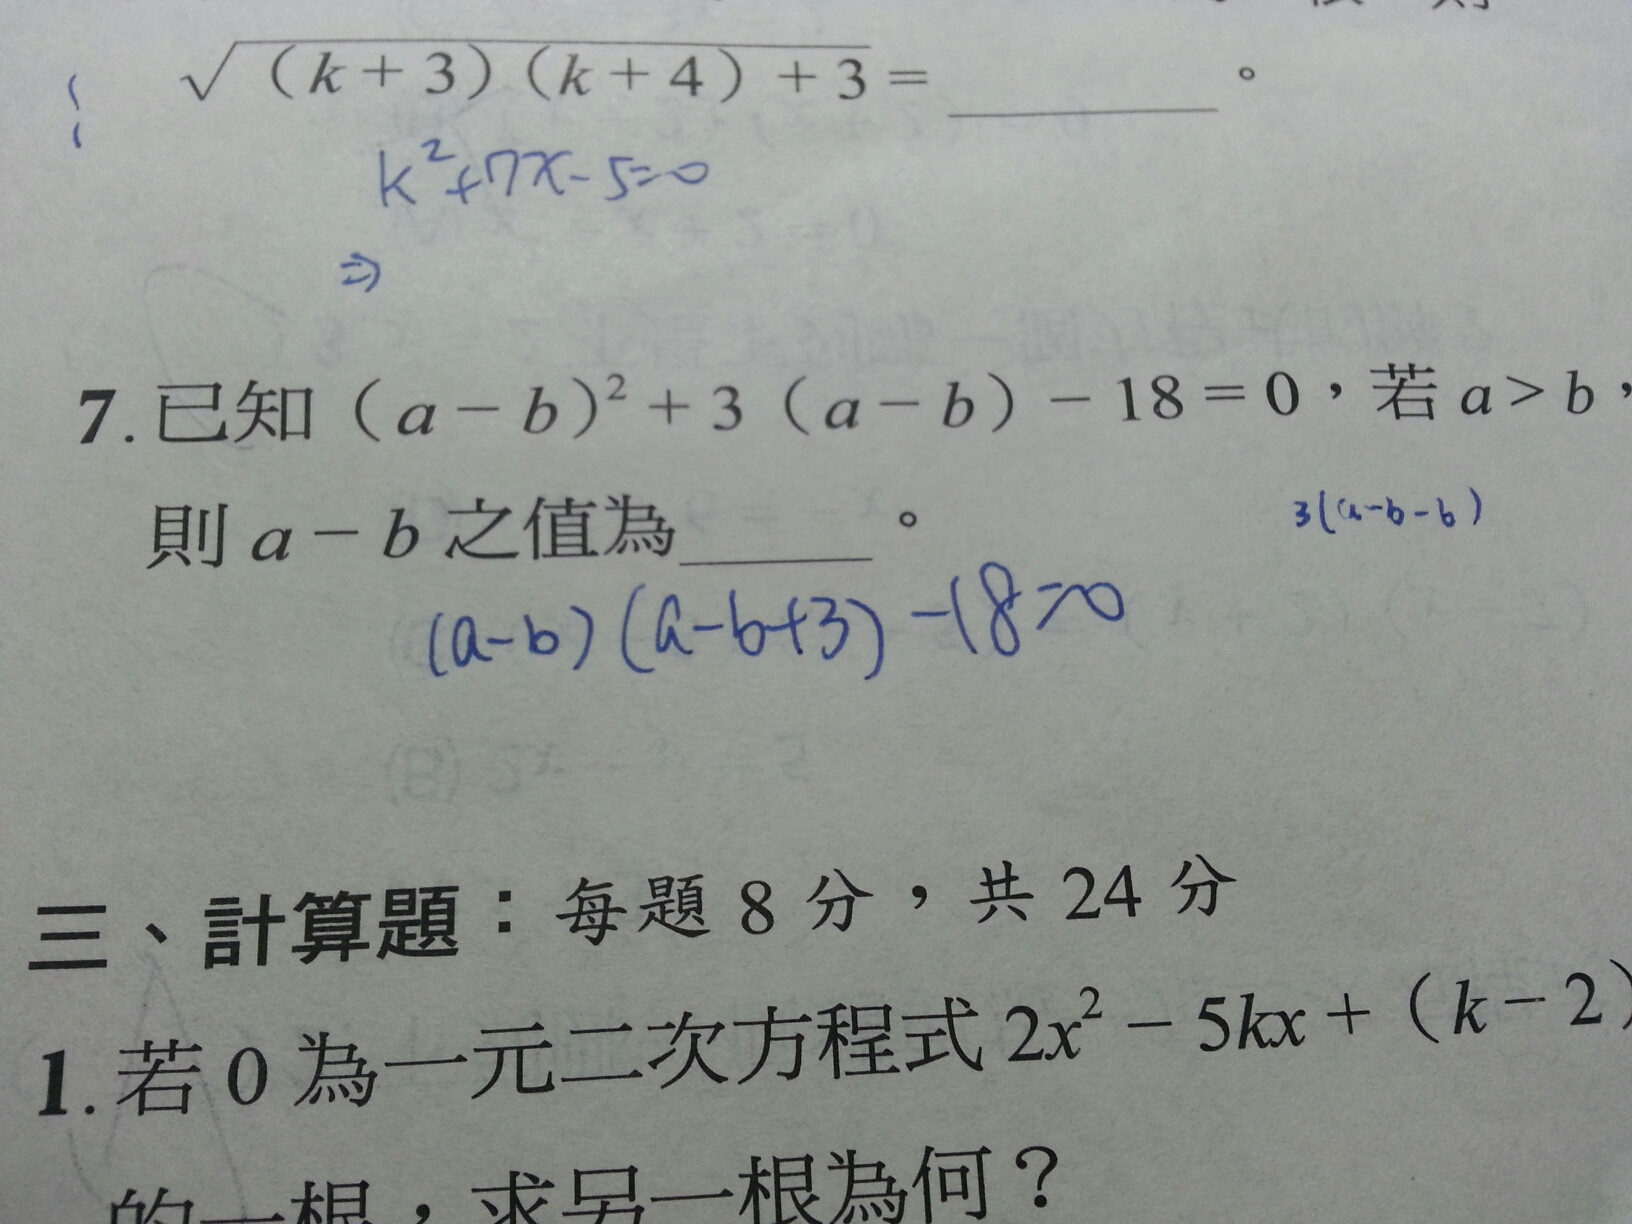 √(k+3)(k+4)+3 = ______。
k²+7x-5=0
⇒
7. 已知(a-b)²+3(a-b)-18=0,若a>b,
則a-b之值為______。
3(a-b-b)
(a-b)(a-b+3)-18=0
三、計算題:每題8分,共24分
1. 若0為一元二次方程式2x²-5kx+(k-2)
的一根,求另一根為何?